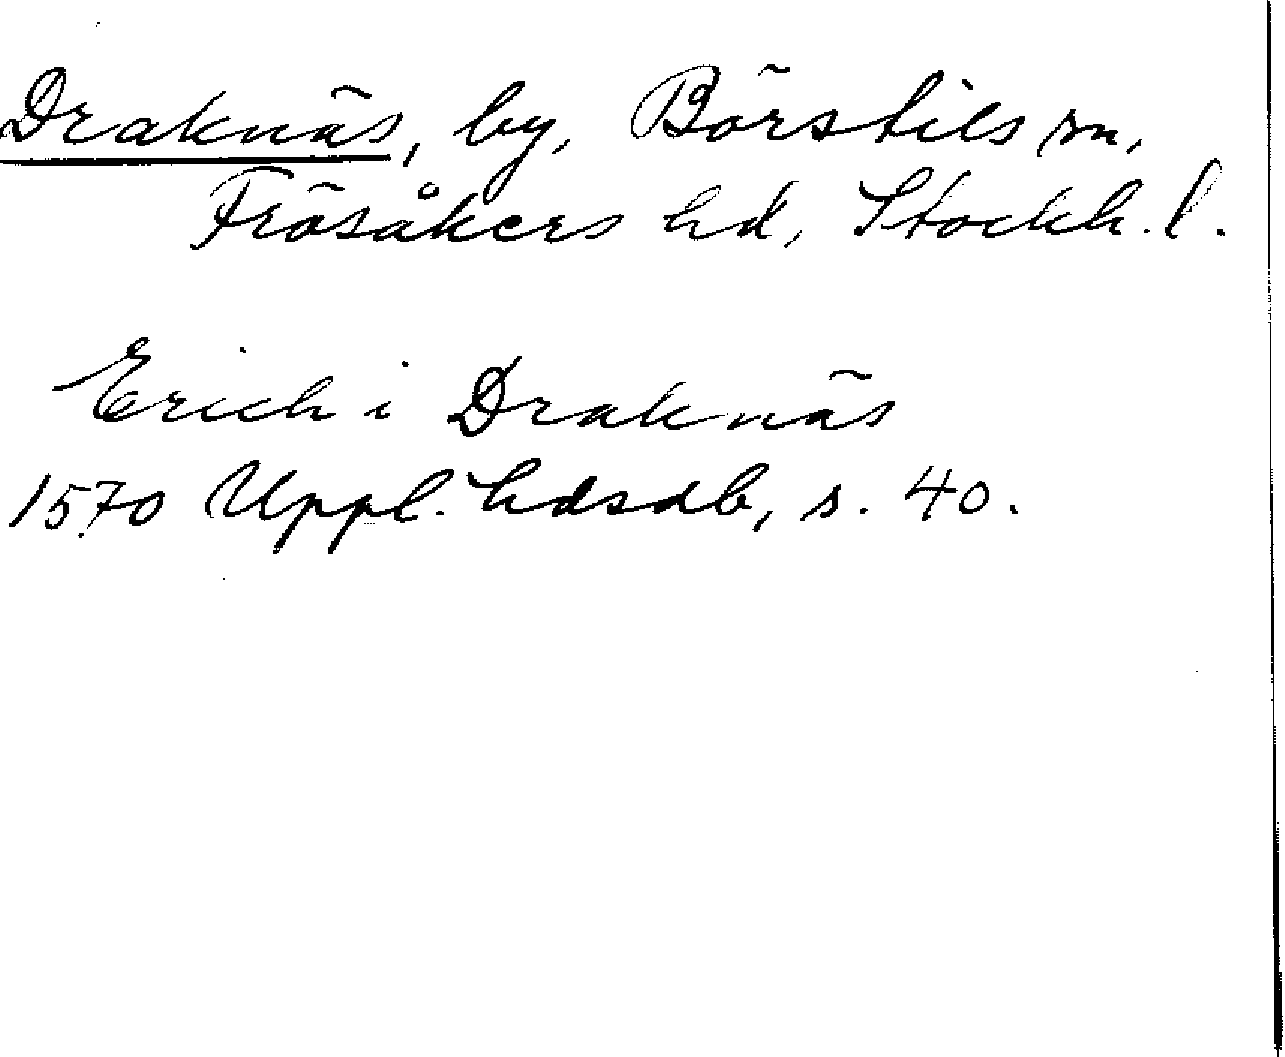 Draknäs, by, Börstils sn,
Frösåkers hd, Stockh. l.
Erich i Draknäs
1570 Uppl. hdsdb, s. 40.